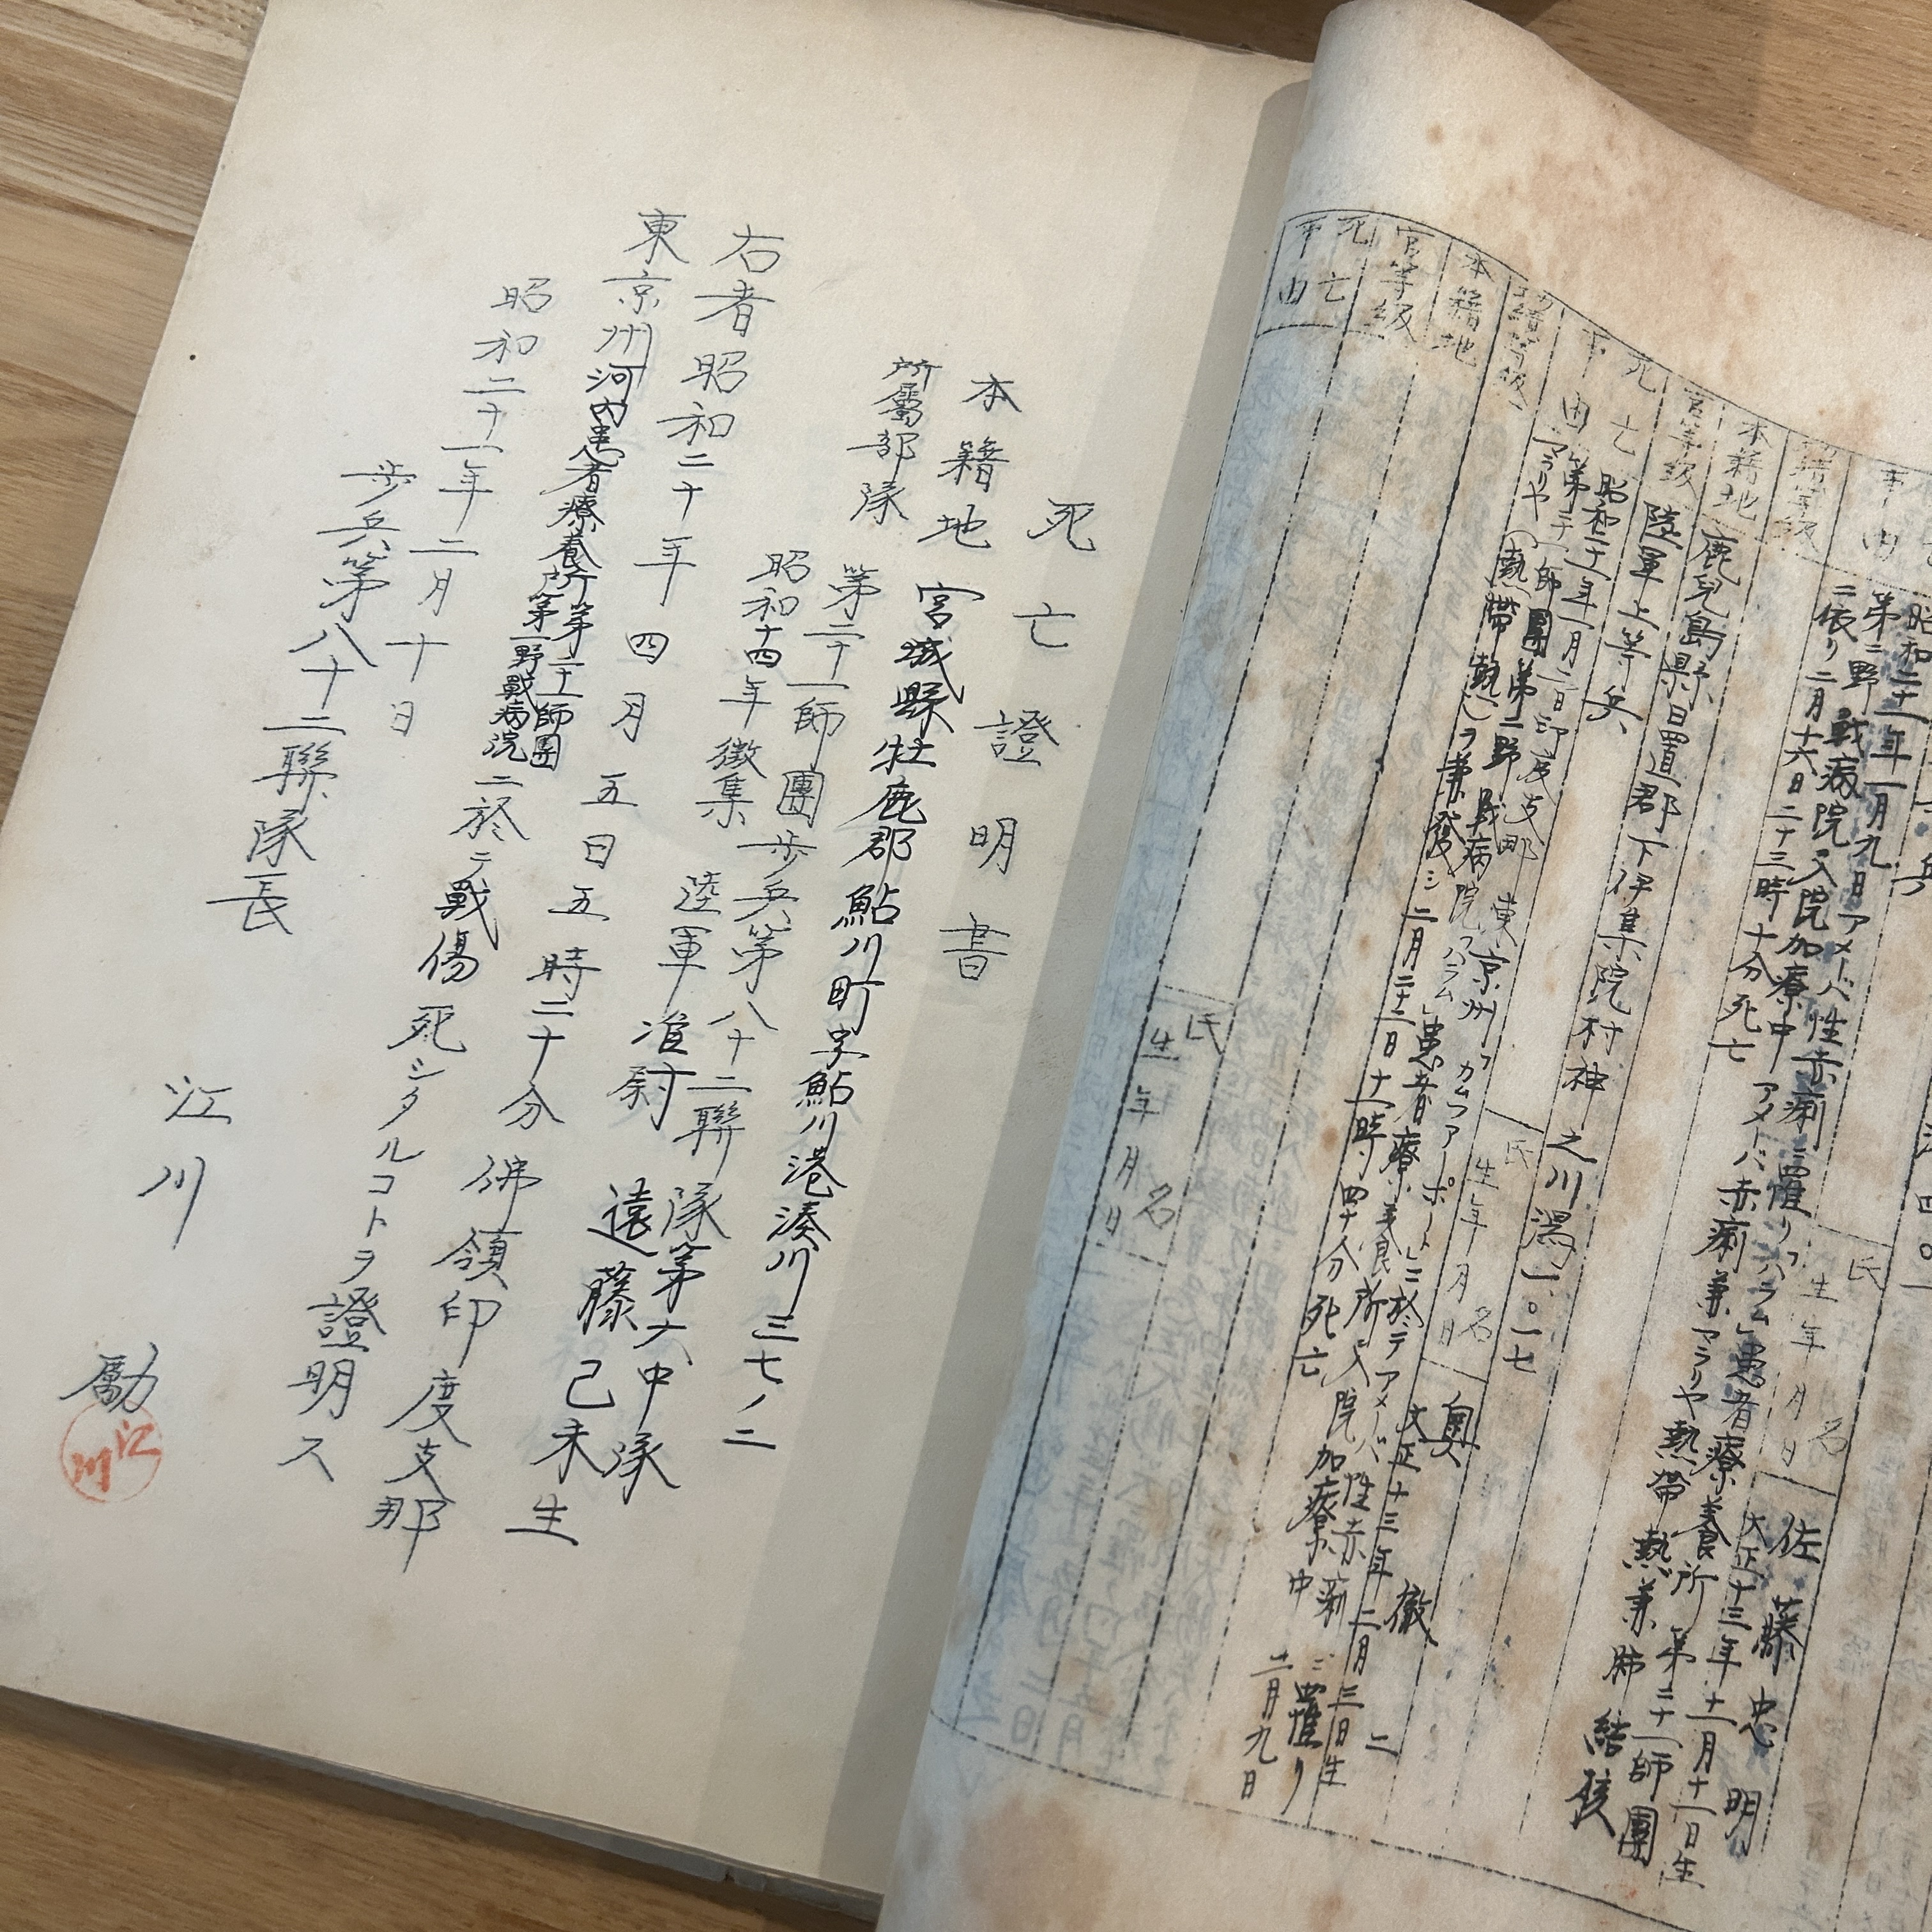 氏名 佐藤忠明
生年月日 大正十三年十一月十一日生
昭和二十一年一月九日アメーバ性赤痢ニ罹リ「ハラム」患者療養所第二十一師團
第二野戰病院ニ入院加療中アメーバ赤痢兼マラリヤ熱帶熱兼肺結核
ニ依リ二月十六日二十三時十分死亡
本籍地 鹿兒島県日置郡下伊集院村神之川潟一〇一七
官等級 陸軍上等兵
氏名 奥徹二
生年月日 大正十三年二月三日生
死亡事由 昭和二十一年一月二日印度支那東京州「カムファーポート」ニ於テアメーバ性赤痢ニ罹リ二月九日
第二十一師團第二野戰病院「ハラム」患者療養所ニ入院加療中
マラリヤ(熱帶熱)ヲ兼發シ二月二十二日十一時四十分死亡
本籍地
官等級
氏名
生年月日
死亡事由
死亡證明書
本籍地 宮城縣牡鹿郡鮎川町字鮎川港湊川三七ノ二
所屬部隊 第二十一師團歩兵第八十二聯隊第六中隊
昭和十四年徴集 陸軍准尉 遠藤己未生
右者昭和二十年四月五日五時二十分佛領印度支那
東京州河内患者療養所第二十一師團第一野戰病院ニ於テ戰傷死シタルコトヲ證明ス
昭和二十一年二月十日
歩兵第八十二聯隊長
江川勵
江川